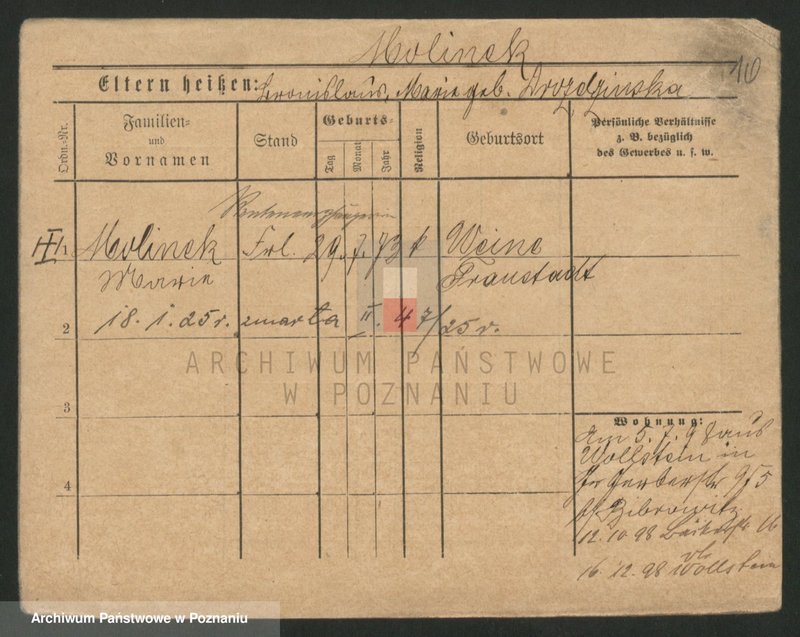 Molinek
10
Eltern heißen: Bronislaus, Marie geb. Drozdzinska
Ordn.-Nr.
Familien- und Vornamen
Stand
Geburts-
Tag
Monat
Jahr
Religion
Geburtsort
Persönliche Verhältnisse
z. B. bezüglich
des Gewerbes u. s. w.
1 Molinek Frl. 29. 7. 73 k Weine
Marie Fraustadt
2 18. 1. 25 r. zmarła II. 47/25 r.
3
4
Wohnung:
Am 5. 7. 98 aus
Wollstein in
Gerberstr 9 
b/ Zibrowitz
12.10.98 16
16.12.98 Wollstein
ARCHIWUM PAŃSTWOWE
W POZNANIU
Archiwum Państwowe w Poznaniu